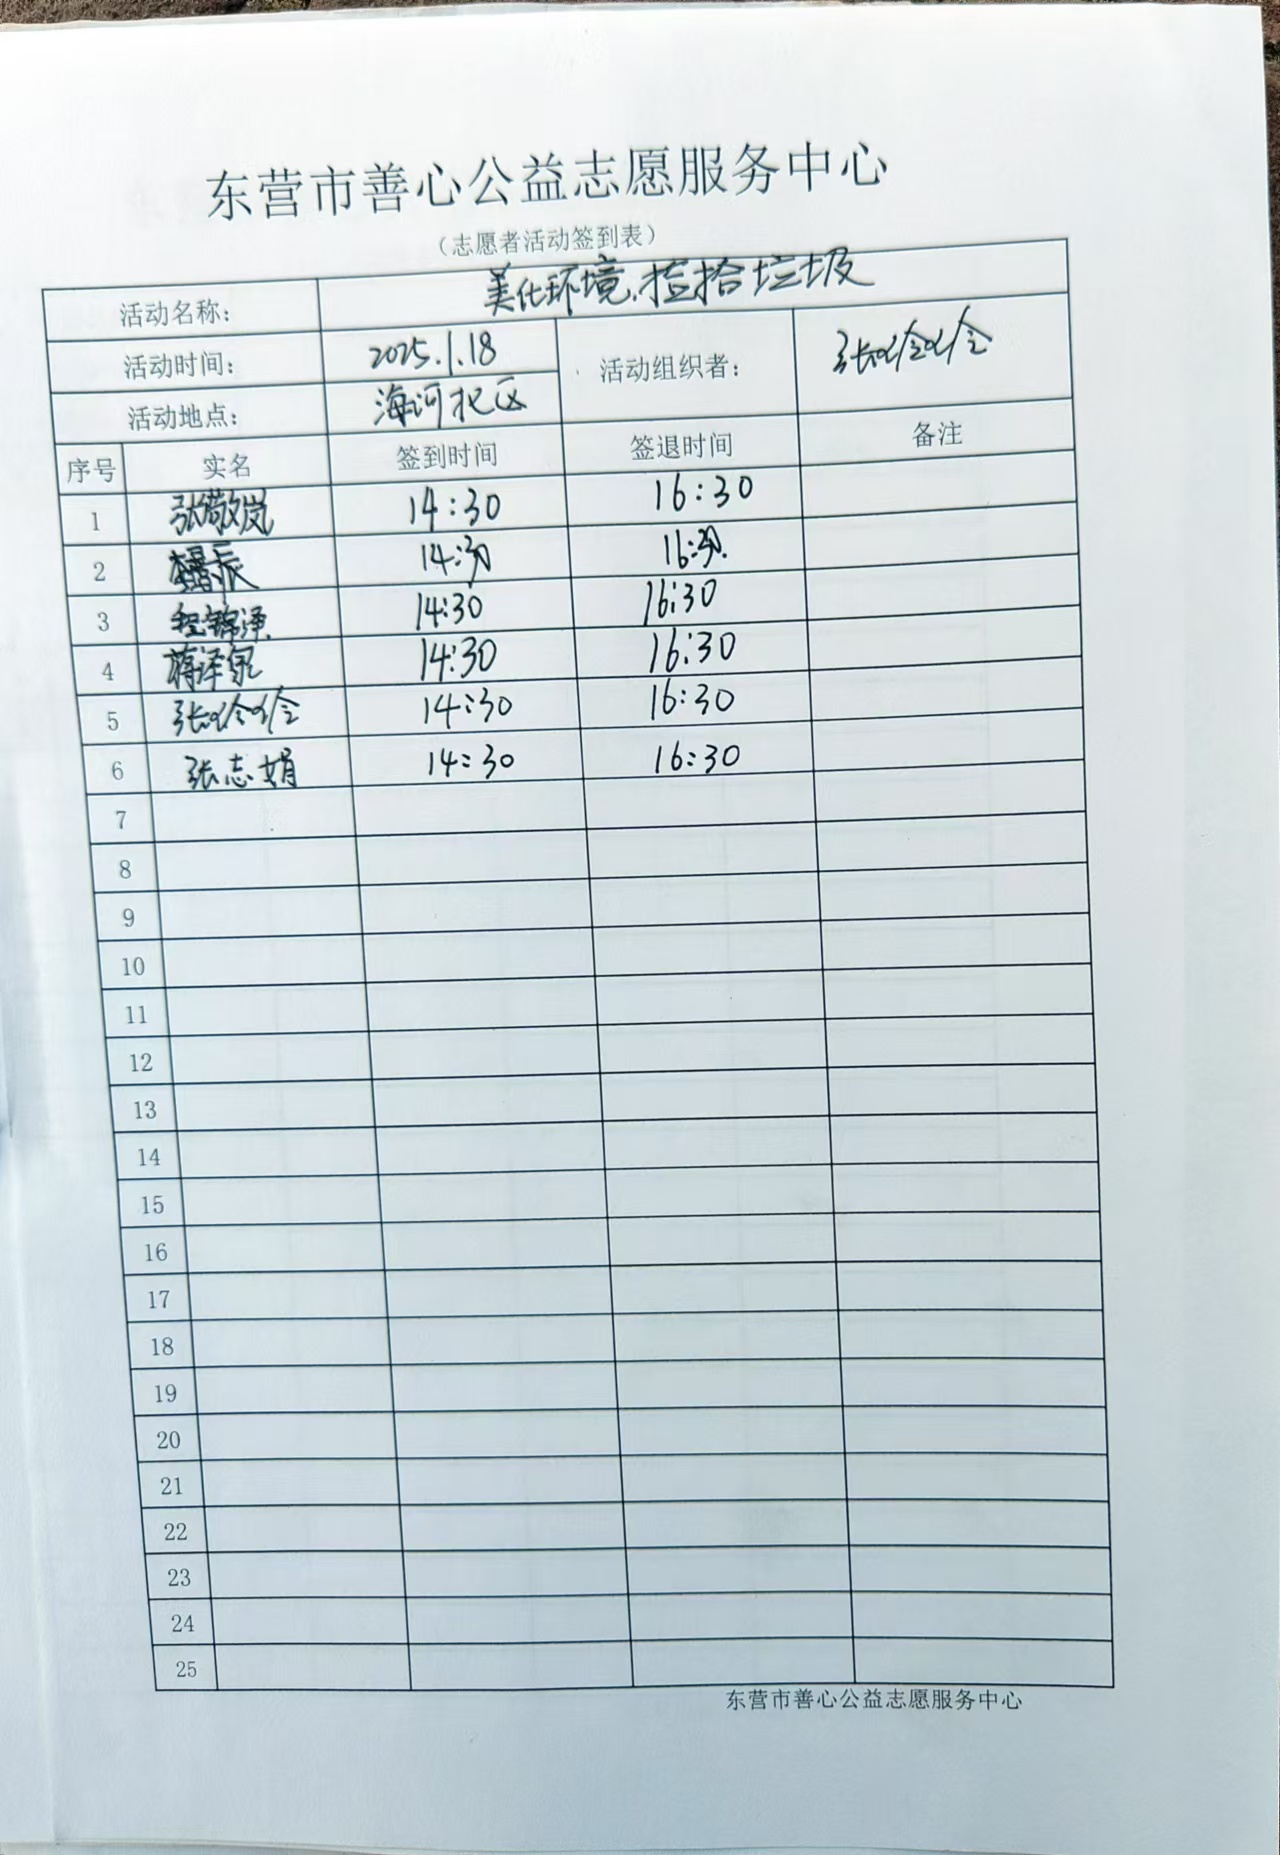 东营市善心公益志愿服务中心
（志愿者活动签到表）
活动名称： 美化环境、捡拾垃圾
活动时间： 2025.1.18 活动组织者： 张伶伶
活动地点： 海河北区
序号 实名 签到时间 签退时间 备注
1 张敬岚 14:30 16:30
2 14:30 16:30.
3 程锦泽 14:30 16:30
4 蒋泽泉 14:30 16:30
5 张伶伶 14:30 16:30
6 张志娟 14:30 16:30
7
8
9
10
11
12
13
14
15
16
17
18
19
20
21
22
23
24
25
东营市善心公益志愿服务中心